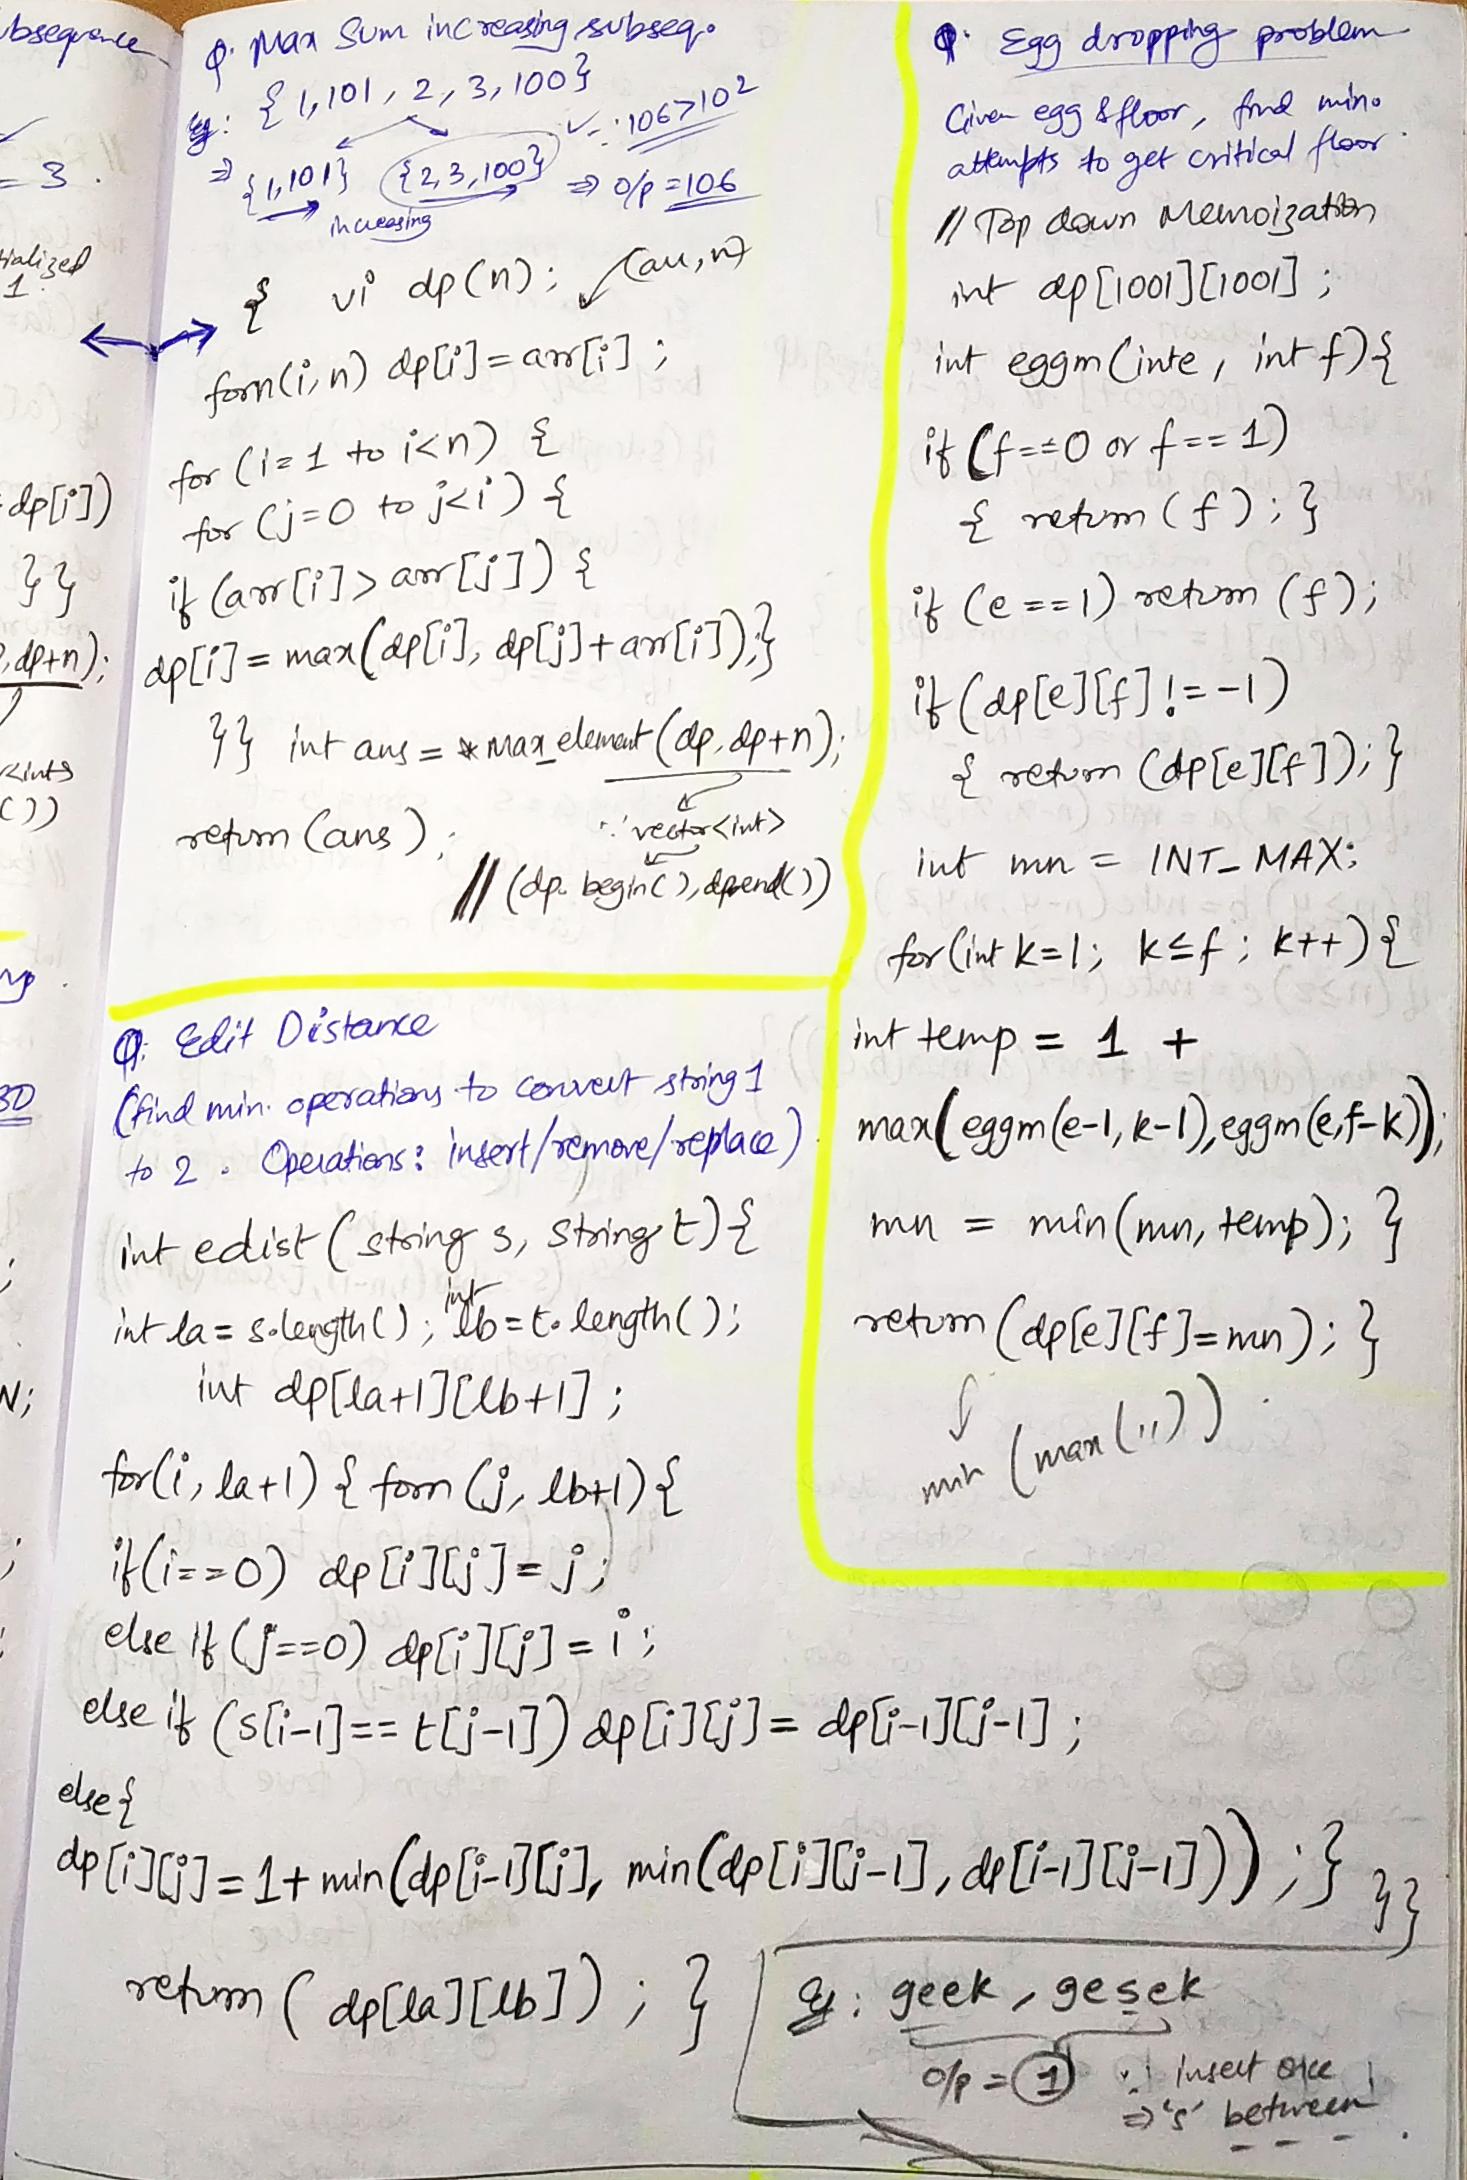 ubsequence
= 3.
tialized
1
=dp[i])
}}
, dp+n);
<int>
())
ng
3D
N;
Q. Max Sum increasing subseq.
eg: {1,101, 2, 3, 100}
⇒ {1,101} {2,3,100} ✓ ∵ 106>102
increasing
⇒ o/p = 106
{ vi dp(n); (arr,n)
forn(i,n) dp[i]=arr[i];
for (i=1 to i<n) {
for (j=0 to j<i) {
if (arr[i]>arr[j]) {
dp[i] = max(dp[i], dp[j]+arr[i]);}
}} int ans = *max_element(dp, dp+n);
return (ans);
∵ vector<int>
// (dp.begin(), dp.end())
Q. Edit Distance
(find min. operations to convert string 1
to 2. Operations: insert/remove/replace)
int edist (string s, string t) {
int la = s.length(); int lb = t.length();
int dp[la+1][lb+1];
for(i, la+1) { forn (j, lb+1) {
if(i==0) dp[i][j]=j;
else if (j==0) dp[i][j] = i;
else if (s[i-1]== t[j-1]) dp[i][j]= dp[i-1][j-1];
else {
dp[i][j]=1+min(dp[i-1][j], min(dp[i][j-1], dp[i-1][j-1]));} }}
return (dp[la][lb]); }
eg: geek, gesek
o/p = 1 ∵ insert once
⇒ 's' between
Q. Egg dropping problem
Given egg & floor, find min.
attempts to get critical floor.
// Top down Memoization
int dp[1001][1001];
int eggm(int e, int f){
if (f==0 or f==1)
{ return (f); }
if (e==1) return (f);
if (dp[e][f]!=-1)
{ return (dp[e][f]);}
int mn = INT_MAX;
for (int k=1; k≤f; k++) {
int temp = 1 +
max(eggm(e-1, k-1), eggm(e,f-k));
mn = min(mn, temp); }
return (dp[e][f]=mn); }
min (max(,,))